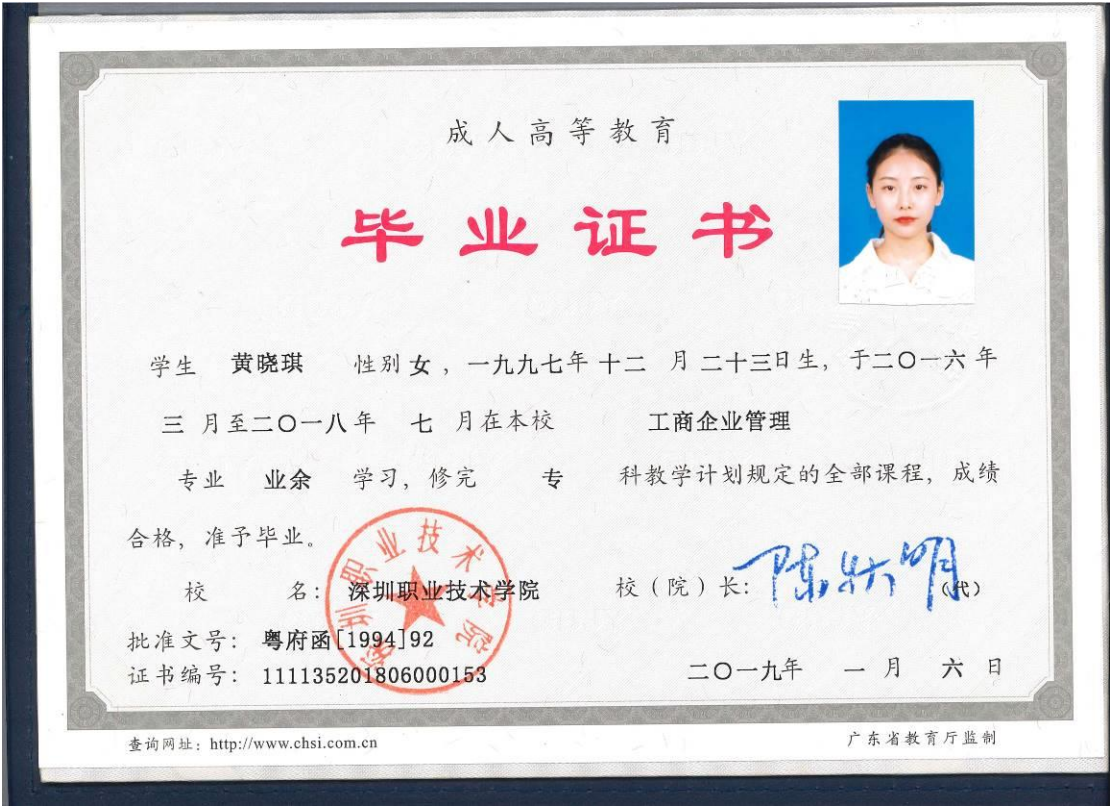 成人高等教育
毕业证书
学生 黄晓琪 性别 女 ，一九九七年 十二 月 二十三日生，于二〇一六年
三 月至二〇一八年 七 月在本校 工商企业管理
专业 业余 学习，修完 专 科教学计划规定的全部课程，成绩
合格，准予毕业。
深圳职业技术学院
校 名：深圳职业技术学院 校（院）长：（代）
批准文号：粤府函[1994]92
证书编号：111135201806000153
二〇一九年 一 月 六 日
查询网址：http://www.chsi.com.cn 广东省教育厅监制